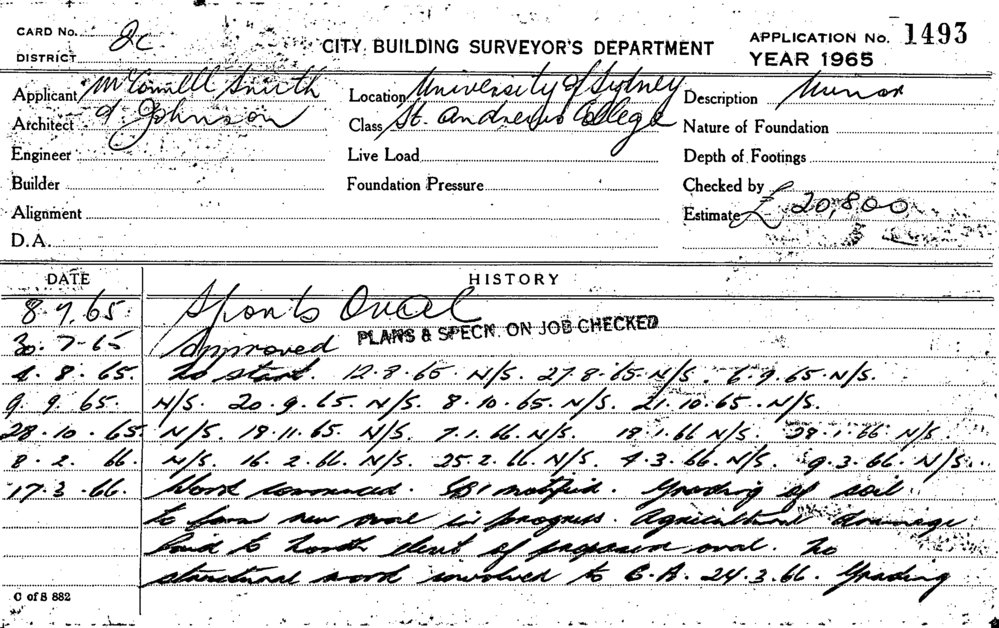 CARD No. 2c
DISTRICT
CITY BUILDING SURVEYOR'S DEPARTMENT
APPLICATION No. 1493
YEAR 1965
Applicant McConnell Smith
Architect & Johnson
Engineer
Builder
Alignment
D.A.
Location University of Sydney
Class St. Andrews College
Live Load
Foundation Pressure
Description Minor
Nature of Foundation
Depth of Footings
Checked by
Estimate £ 20,800
DATE HISTORY
8.7.65. Sports Oval
PLANS & SPECN. ON JOB CHECKED
30.7.65 Approved
4.8.65. No start. 12.8.65 N/S. 27.8.65 N/S. 6.9.65 N/S.
9.9.65. N/S. 20.9.65. N/S. 8.10.65. N/S. 21.10.65. N/S.
28.10.65. N/S. 18.11.65. N/S. 7.1.66. N/S. 18.1.66 N/S. 28.1.66 N/S.
8.2.66. N/S. 16.2.66. N/S. 25.2.66 N/S. 4.3.66. N/S. 9.3.66. N/S.
17.3.66. Work commenced. notified. Grading of soil
to form new oval in progress. Agricultural drainage
laid to north of proposed oval. No
structural work involved to 24.3.66. Grading
C of S 882